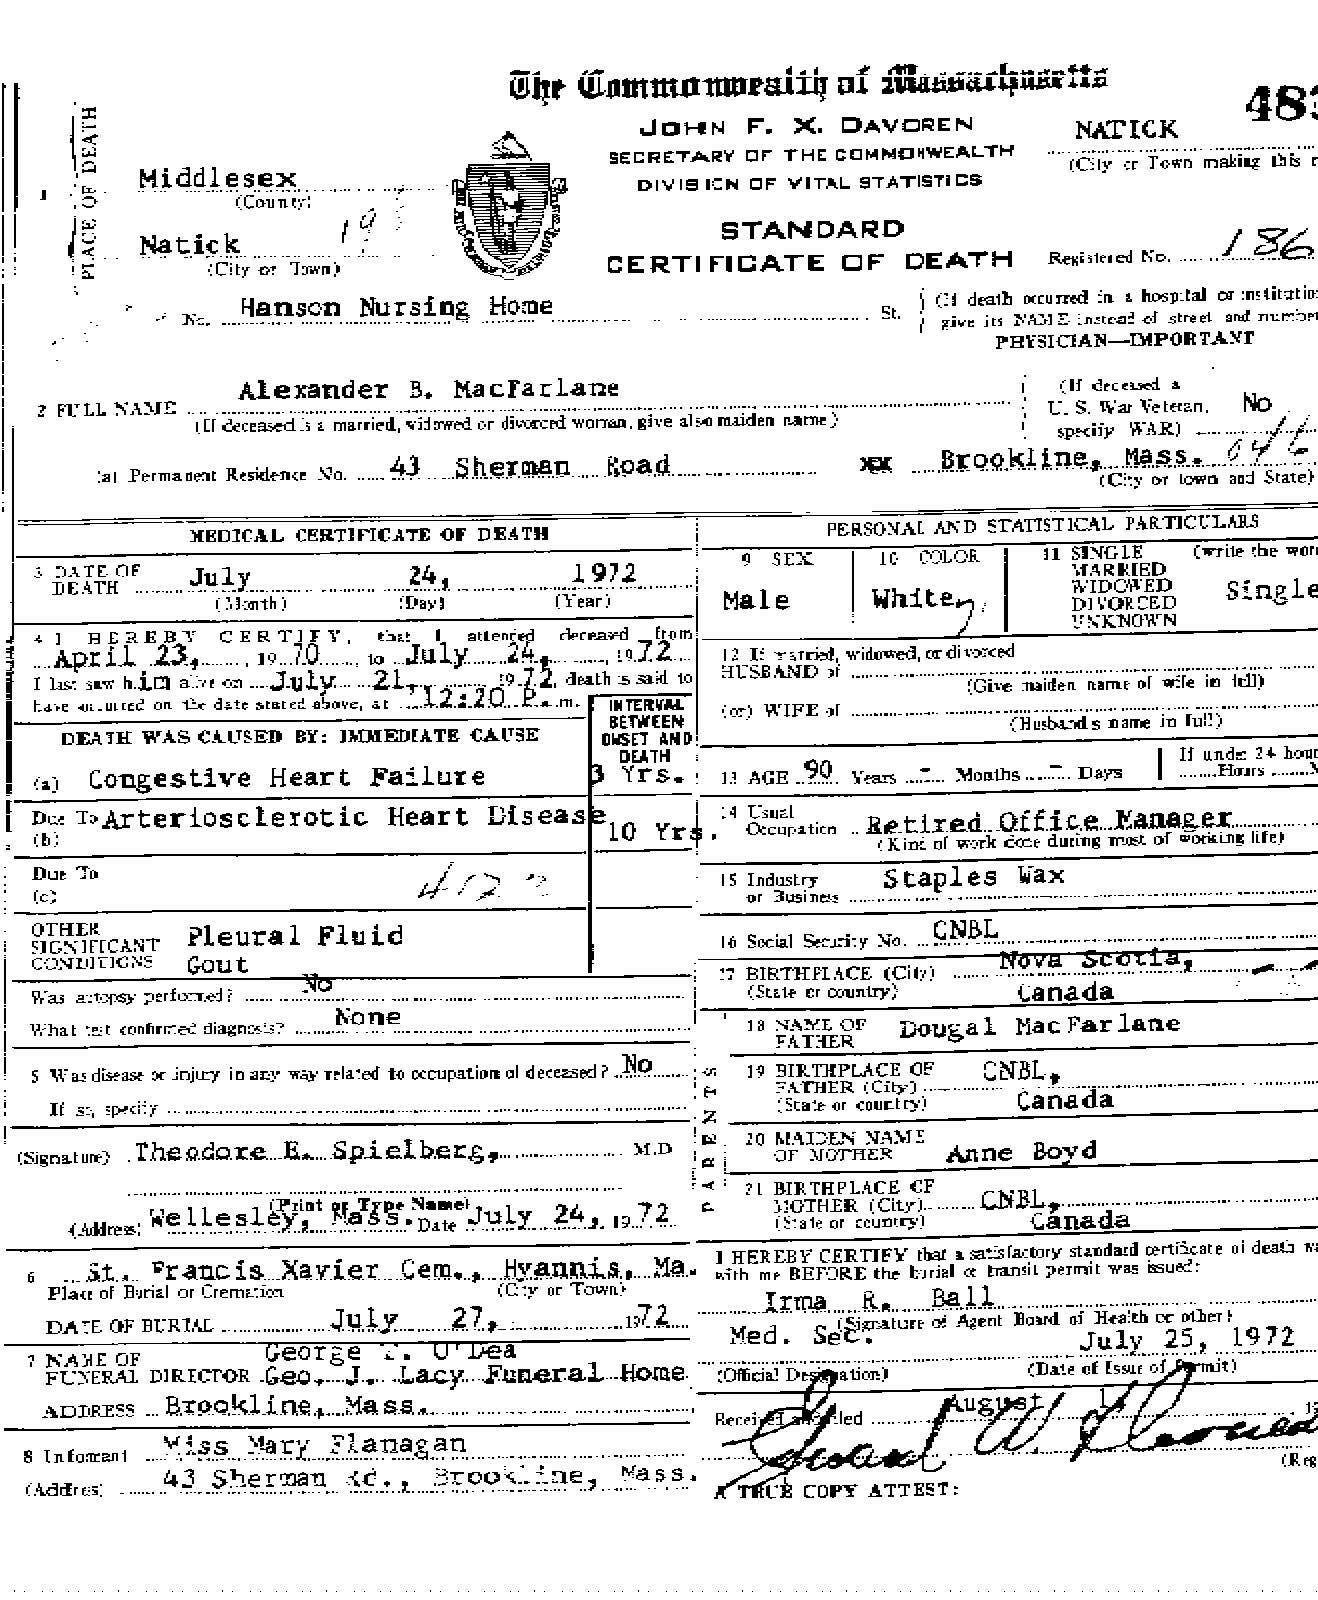 The Commonwealth of Massachusetts
JOHN F. X. DAVOREN
SECRETARY OF THE COMMONWEALTH
DIVISION OF VITAL STATISTICS
STANDARD
CERTIFICATE OF DEATH
483
NATICK
(City or Town making this
Registered No. 186
1
PLACE OF DEATH
Middlesex
(County)
Natick
(City or Town)
No. Hanson Nursing Home St.
(If death occurred in a hospital or institution
give its NAME instead of street and number
PHYSICIAN—IMPORTANT
2 FULL NAME Alexander B. MacFarlane
(If deceased is a married, widowed or divorced woman, give also maiden name)
(If deceased a
U. S. War Veteran,
specify WAR) No
(a) Permanent Residence No. 43 Sherman Road XX Brookline, Mass. 046
(City or town and State)
MEDICAL CERTIFICATE OF DEATH
3 DATE OF
DEATH July 24, 1972
(Month) (Day) (Year)
4 I HEREBY CERTIFY, that I attended deceased from
April 23, 1970 to July 24, 1972
I last saw him alive on July 21, 1972, death is said to
have occurred on the date stated above, at 12:20 P. m.
INTERVAL
BETWEEN
ONSET AND
DEATH
DEATH WAS CAUSED BY: IMMEDIATE CAUSE
(a) Congestive Heart Failure 3 Yrs.
Due To Arteriosclerotic Heart Disease
(b) 10 Yrs.
Due To
(c)
OTHER
SIGNIFICANT
CONDITIONS
Pleural Fluid
Gout
Was autopsy performed? No
What test confirmed diagnosis? None
5 Was disease or injury in any way related to occupation of deceased? No
If so, specify
(Signature) Theodore E. Spielberg, M.D
(Print or Type Name)
(Address) Wellesley, Mass. Date July 24, 1972
6 St. Francis Xavier Cem., Hyannis, Ma.
Place of Burial or Cremation (City or Town)
DATE OF BURIAL July 27, 1972
7 NAME OF
FUNERAL DIRECTOR George T. O'Dea
Geo. J. Lacy Funeral Home
ADDRESS Brookline, Mass.
8 Informant Miss Mary Flanagan
(Address) 43 Sherman Rd., Brookline, Mass.
PERSONAL AND STATISTICAL PARTICULARS
9 SEX
Male
10 COLOR
White
11 SINGLE
MARRIED
WIDOWED
DIVORCED
UNKNOWN
(write the word
Single
12 If married, widowed, or divorced
HUSBAND of
(Give maiden name of wife in full)
(or) WIFE of
(Husband's name in full)
13 AGE 90 Years - Months - Days
If under 24 hours
Hours
14 Usual
Occupation Retired Office Manager
(Kind of work done during most of working life)
15 Industry
or Business Staples Wax
16 Social Security No. CNBL
17 BIRTHPLACE (City) Nova Scotia,
(State or country) Canada
PARENTS
18 NAME OF
FATHER Dougal MacFarlane
19 BIRTHPLACE OF
FATHER (City) CNBL,
(State or country) Canada
20 MAIDEN NAME
OF MOTHER Anne Boyd
21 BIRTHPLACE OF
MOTHER (City) CNBL,
(State or country) Canada
I HEREBY CERTIFY that a satisfactory standard certificate of death
with me BEFORE the burial or transit permit was issued:
Irma R. Ball
(Signature of Agent Board of Health or other)
Med. Sec. July 25, 1972
(Official Designation) (Date of Issue of Permit)
Received and filed August 1
A TRUE COPY ATTEST: